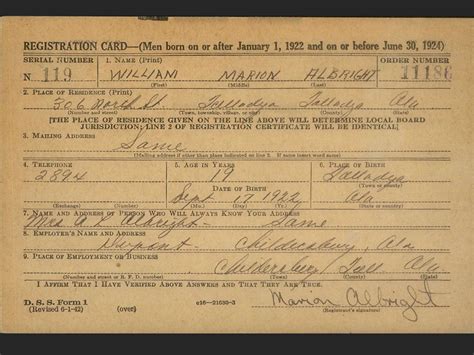 REGISTRATION CARD—(Men born on or after January 1, 1922 and on or before June 30, 1924)
SERIAL NUMBER 1. NAME (Print) ORDER NUMBER
N 119 WILLIAM MARION ALBRIGHT 11186
(First) (Middle) (Last)
2. PLACE OF RESIDENCE (Print)
306 North St. Talladega Talladega Ala
(Number and street) (Town, township, village, or city) (County) (State)
[THE PLACE OF RESIDENCE GIVEN ON THE LINE ABOVE WILL DETERMINE LOCAL BOARD
JURISDICTION; LINE 2 OF REGISTRATION CERTIFICATE WILL BE IDENTICAL]
3. MAILING ADDRESS
Same
(Mailing address if other than place indicated on line 2. If same insert word same)
4. TELEPHONE 5. AGE IN YEARS 6. PLACE OF BIRTH
2894 19 Talladega
DATE OF BIRTH (Town or county)
Sept 17 1922 Ala
(Exchange) (Number) (Mo.) (Day) (Yr.) (State or country)
7. NAME AND ADDRESS OF PERSON WHO WILL ALWAYS KNOW YOUR ADDRESS
Mrs Albright - Same
8. EMPLOYER'S NAME AND ADDRESS
Dupont - Childersburg, Ala
9. PLACE OF EMPLOYMENT OR BUSINESS
Childersburg Tall. Ala
(Number and street or R. F. D. number) (Town) (County) (State)
I AFFIRM THAT I HAVE VERIFIED ABOVE ANSWERS AND THAT THEY ARE TRUE.
D. S. S. Form 1
(Revised 6-1-42) (over) Marion Albright
(Registrant's signature)